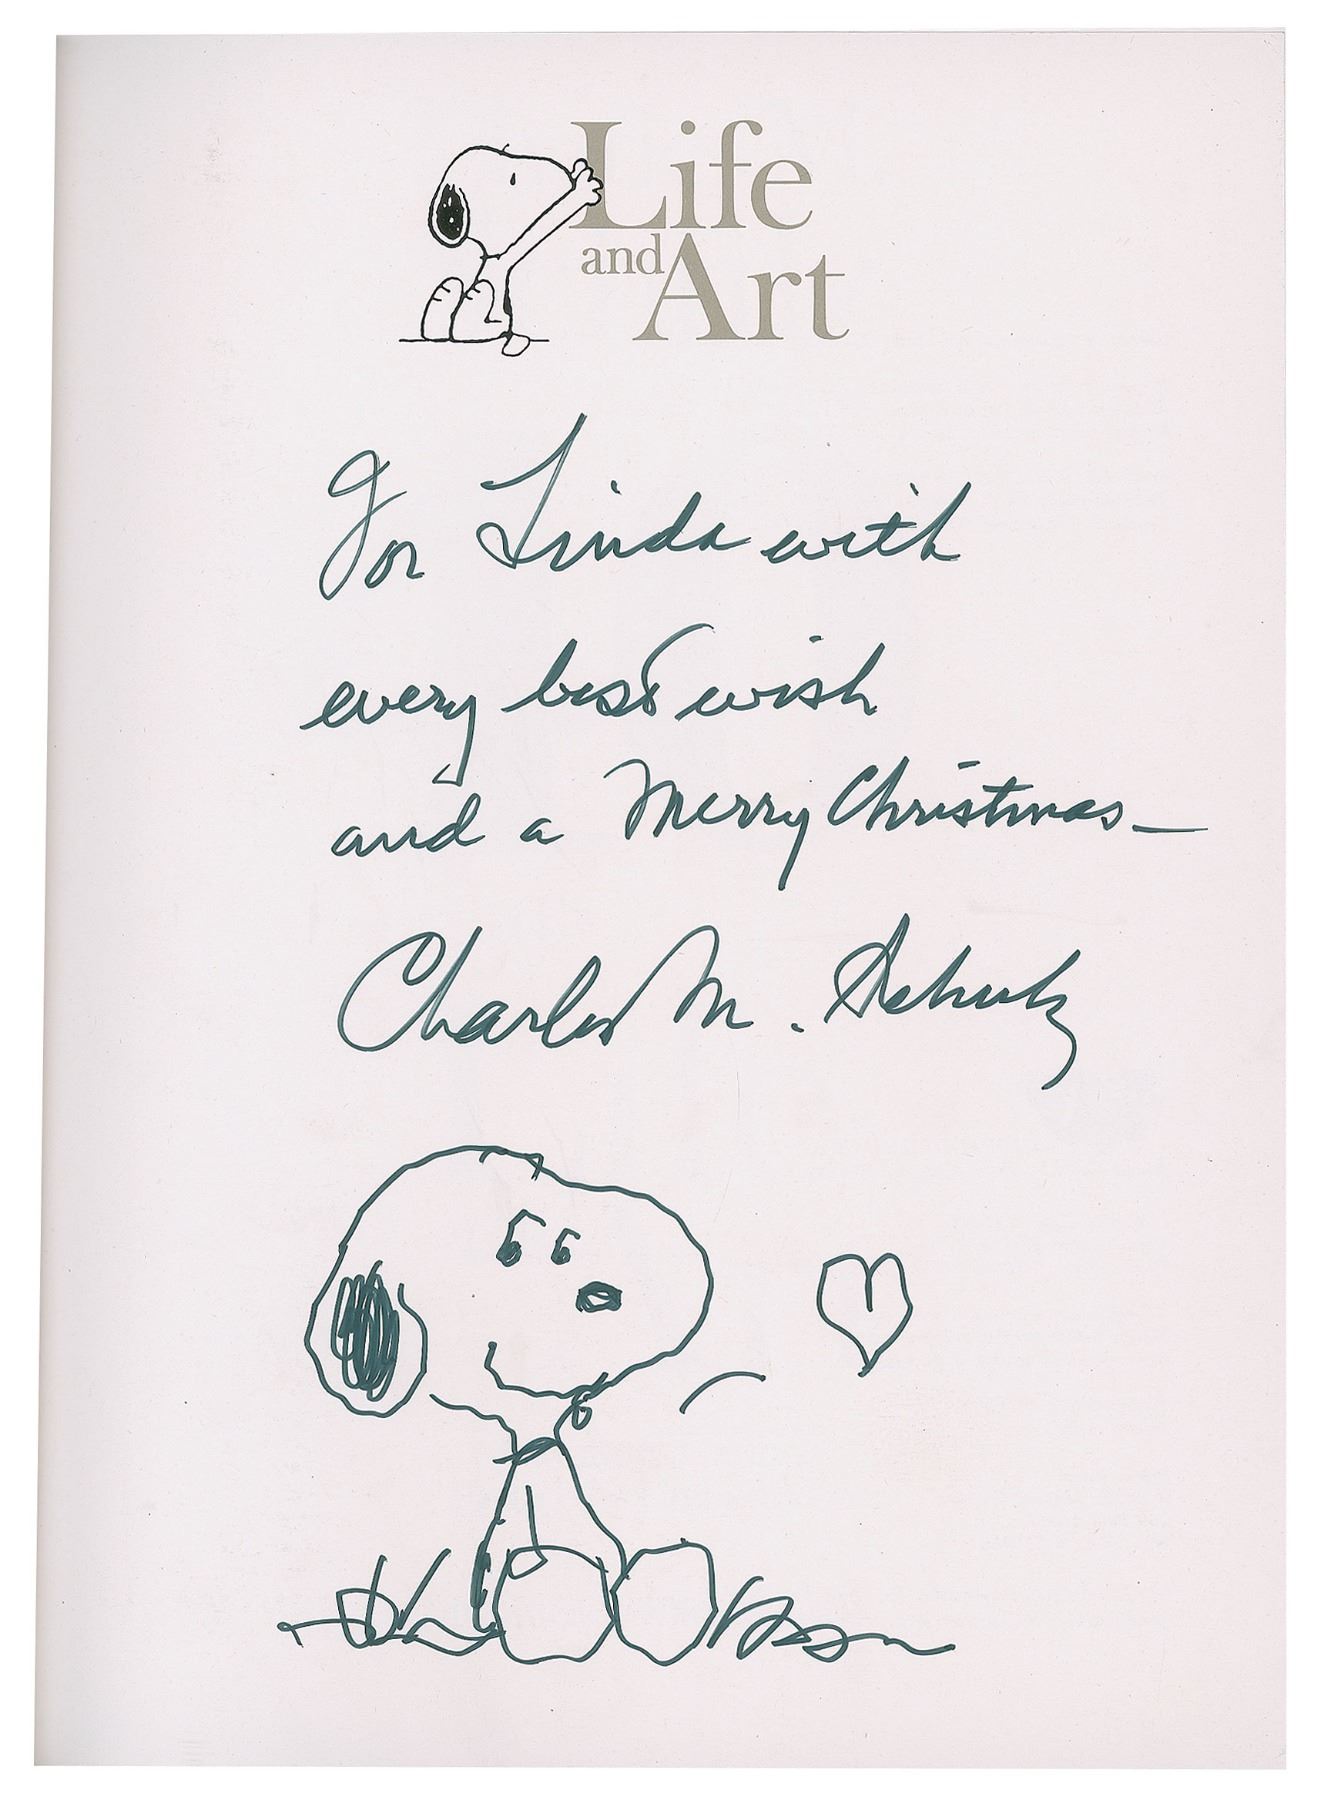 Life
and Art
For Linda with
every best wish
and a Merry Christmas—
Charles M. Schulz